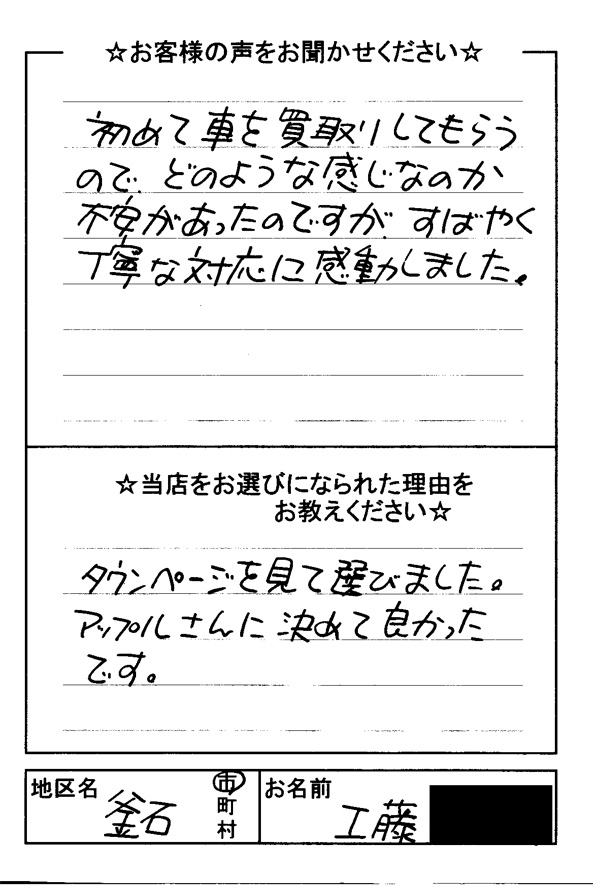 ☆お客様の声をお聞かせください☆
初めて車を買取りしてもらう
ので、どのような感じなのか
不安があったのですが、すばやく
丁寧な対応に感動しました。
☆当店をお選びになられた理由を
お教えください☆
タウンページを見て選びました。
アップルさんに決めて良かった
です。
地区名 釜石 市 町 村
お名前 工藤